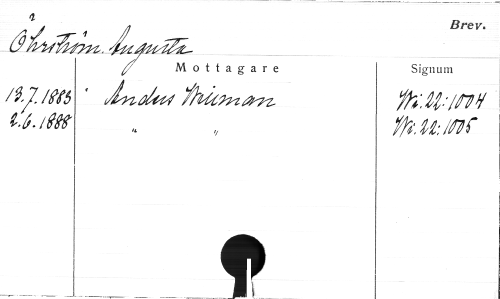 Brev.
Öhrström, Augusta
Mottagare Signum
13.7.1883 Anders Wiman Wi.22:1004
2.6.1888 " " Wi.22:1005